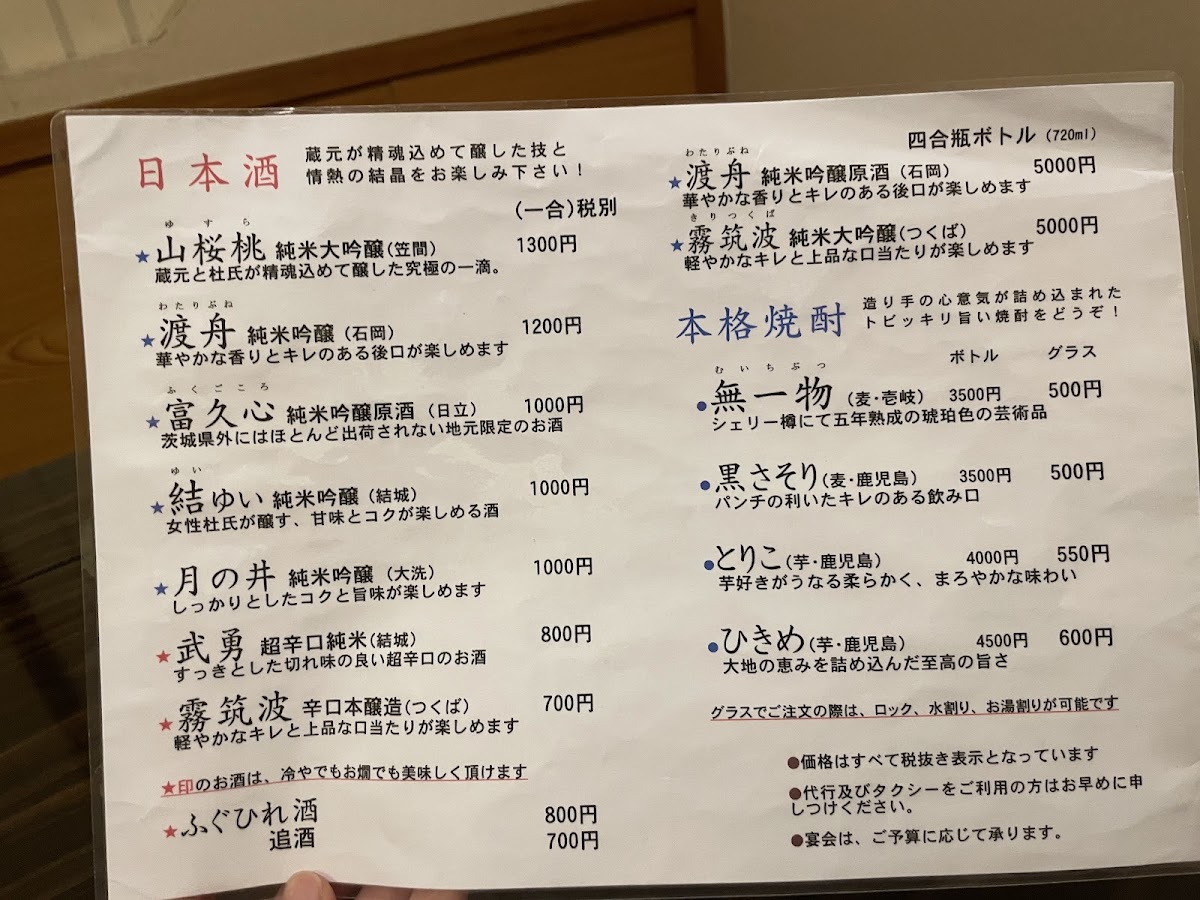 日本酒
蔵元が精魂込めて醸した技と
情熱の結晶をお楽しみ下さい！
(一合)税別
ゆすら
★山桜桃 純米大吟醸(笠間) 1300円
蔵元と杜氏が精魂込めて醸した究極の一滴。
わたりぶね
★渡舟 純米吟醸(石岡) 1200円
華やかな香りとキレのある後口が楽しめます
ふくごころ
★富久心 純米吟醸原酒(日立) 1000円
茨城県外にはほとんど出荷されない地元限定のお酒
ゆい
★結ゆい 純米吟醸(結城) 1000円
女性杜氏が醸す、甘味とコクが楽しめる酒
★月の井 純米吟醸(大洗) 1000円
しっかりとしたコクと旨味が楽しめます
★武勇 超辛口純米(結城) 800円
すっきとした切れ味の良い超辛口のお酒
★霧筑波 辛口本醸造(つくば) 700円
軽やかなキレと上品な口当たりが楽しめます
★印のお酒は、冷やでもお燗でも美味しく頂けます
★ふぐひれ酒 800円
追酒 700円
四合瓶ボトル(720ml)
わたりぶね
★渡舟 純米吟醸原酒(石岡) 5000円
華やかな香りとキレのある後口が楽しめます
きりつくば
★霧筑波 純米大吟醸(つくば) 5000円
軽やかなキレと上品な口当たりが楽しめます
本格焼酎
造り手の心意気が詰め込まれた
トビッキリ旨い焼酎をどうぞ！
ボトル グラス
むいちぶつ
●無一物(麦・壱岐) 3500円 500円
シェリー樽にて五年熟成の琥珀色の芸術品
●黒さそり(麦・鹿児島) 3500円 500円
パンチの利いたキレのある飲み口
●とりこ(芋・鹿児島) 4000円 550円
芋好きがうなる柔らかく、まろやかな味わい
●ひきめ(芋・鹿児島) 4500円 600円
大地の恵みを詰め込んだ至高の旨さ
グラスでご注文の際は、ロック、水割り、お湯割りが可能です
●価格はすべて税抜き表示となっています
●代行及びタクシーをご利用の方はお早めに申
しつけください。
●宴会は、ご予算に応じて承ります。